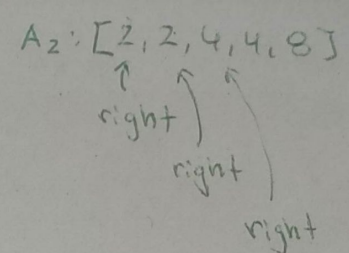 A2: [2, 2, 4, 4, 8]
right
right
right